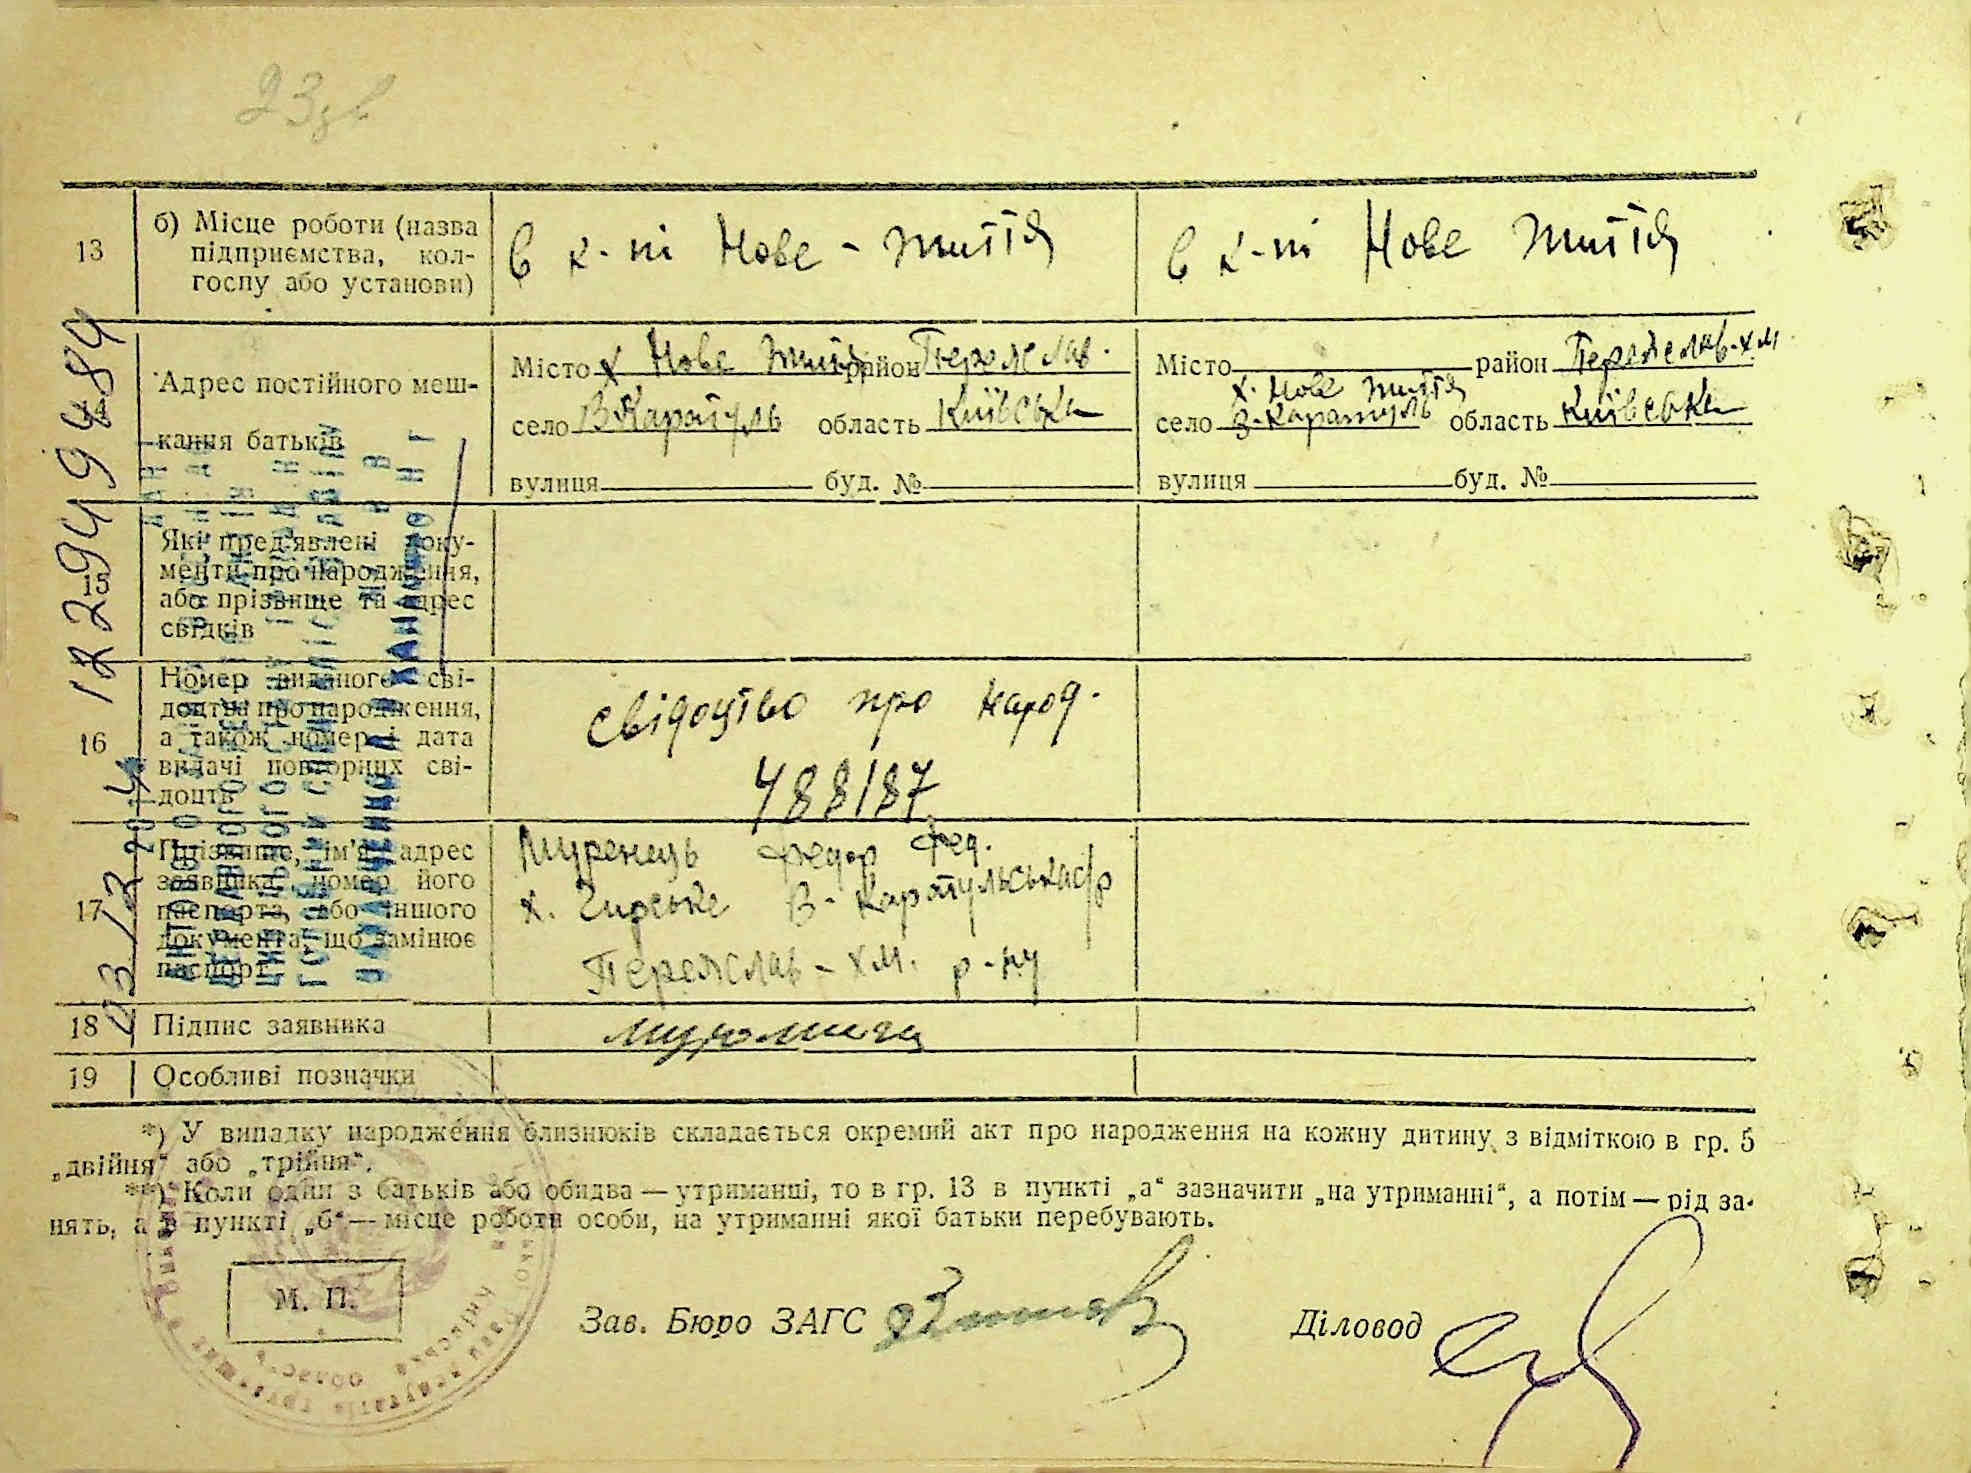 23зв
13
б) Місце роботи (назва
підприємства, кол-
госпу або установи)
в к-пі Нове - Життя
в к-пі Нове Життя
Адрес постійного меш-
кання батьків
Місто х Нове Життя район Переяслав.
село В Каратуль область Київська
вулиця буд. №
Місто район Переяслав-хм
х. Нове Життя
село В-Каратуль область Київська
вулиця буд. №
15
Які пред'явлені доку-
менти про народження,
або прізвище та адрес
свідків
16
Номер виданого сві-
доцтва про народження,
а також номер і дата
видачі повторних сві-
доцтв
свідоцтво про народ.
488187
17
Прізвище, ім'я, адрес
заявника, номер його
паспорта, або іншого
документа, що замінює
паспорт
Муренець Федор Фед.
х. Гирське В-Каратульська с/р
Переяслав-хм. р-ну
18
Підпис заявника
19
Особливі позначки
*) У випадку народження близнюків складається окремий акт про народження на кожну дитину з відміткою в гр. 5
„двійня“ або „трійня“.
**) Коли один з батьків або обидва — утриманці, то в гр. 13 в пункті „а“ зазначити „на утриманні“, а потім — рід за-
нять, а в пункті „б“ — місце роботи особи, на утриманні якої батьки перебувають.
М. П.
Зав. Бюро ЗАГС
Діловод